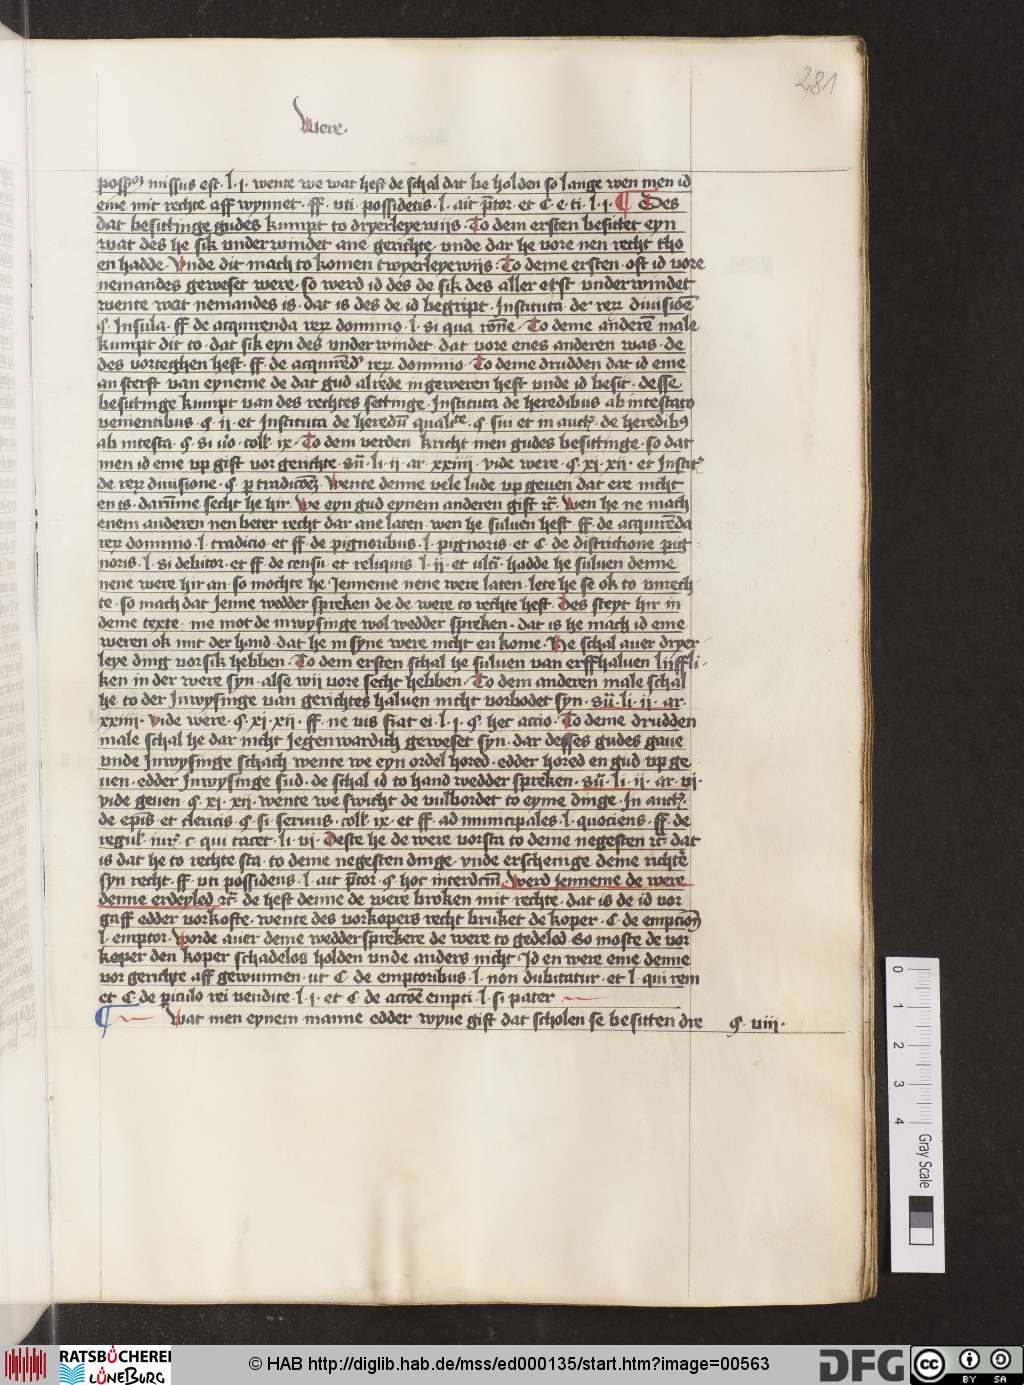 281
Were.
possōn missus est · l · j · wente we wat heft de schal dat be holden so lange wen men id
eme mit rechte aff wynnet · ff · vti possidetis · l · ait p̄tor · et C · e · ti · l · j · ¶ Des
dat besittinge gudes kumpt to dryerleye wijs · To dem ersten besittet eyn
wat des he sik vnder windet ane gerichte vnde dar he vore nen recht tho
en hadde · Vnde dit mach to komen twyerleye wijs · To deme ersten · oft id vore
nemandes geweset were · so werd id des de sik des aller erst vnderwindet
wente wat nemandes is · dat is des de id begript · Instituta · de reꝝ diuisiōe
§ · Insula · ff de acquirenda reꝝ dominio · l · si qua rōne · To deme anderē male
kumpt dit to · dat sik eyn des vnder windet · dat vore enes anderen was · de
des vorteghen heft · ff · de acquirēd' reꝝ dominio · To deme drudden dat id eme
an sterft van eyneme de dat gud alrede in geweren heft vnde id besit · desse
besittinge kumpt van des rechtes settinge · Instituta de heredibus ab intestato
venientibus · § · ij · et Instituta de heredū qualite · § · sui et in autē · de heredib9
ab intesta · § · si u̇o · coll · ix · To dem verden kricht men gudes besittinge · so dat
men id eme vp gift vor gerichte · sū · li · ij · ar · xxiiij · vide were · § · xj · xij · et Instit'
de reꝝ diuisione · § · p tradicōeꝫ · Wente denne vele lude vp geuen dat ere nicht
en is · darūme secht he hir · We eyn gud eynem anderen gift rc̄ · Wen he ne mach
enem anderen nen beter recht dar ane laten · wen he suluen heft · ff · de acquirēda
reꝝ dominio · l · tradicio · et ff · de pignoribus · l · pignoris · et C · de districtione pig
noris · l · si debitor · et ff · de censu · et reliquis · l · ij · et ultī · hadde he suluen denne
nene were hir an · so mochte he Jenneme nene were laten · lete he se ok to vnrech
te · so mach dat Jenne wedder spreken de de were to rechte heft · Des steyt hir in
deme texte · me mot de inwysinge wol wedder spreken · dat is he mach id eme
weren ok mit der hand · dat he in syne were nicht en kome · He schal auer dryer
leye ding vor sik hebben · To dem ersten schal he suluen van erffhaluen lijffli
ken in der were syn · alse wij vore secht hebben · To dem anderen male schal
he to der Inwysinge van gerichtes haluen nicht vorbodet syn · sū · li · ij · ar ·
xxiiij · vide were · § · xj · xij · ff · ne vis fiat ei · l · j · § · hec actio · To deme drudden
male schal he dar nicht Jegenwardich geweset syn · dar desses gudes gaue
vnde Inwysinge schach · wente we eyn ordel hored · edder hored en gud vp ge
uen · edder Inwysinge sud · de schal id to hand wedder spreken · sū · li · ij · ar · vj ·
vide geuen · § · xj · xij · wente we swicht de vulbordet to eyme dinge · In autē ·
de epis et clericis · § · si seruus · coll · ix · et ff · ad municipales · l · quotiens · ff · de
regul · iur' · c · qui tacet · li · vj · Deste he de were vorsta to deme negesten rc̄ · dat
is dat he to rechte sta · to deme negesten dinge · vnde erscheinge deme richtē
syn recht · ff · vti possidens · l · ait p̄tor · § · hoc interdictū · Werd jenneme de were
denne erdeyled rc̄ · de heft denne de were broken mit rechte · dat is de id vor
gaff edder vorkofte · wente des vorkopers recht bruket de koper · C · de empcion
l · emptor · Worde auer deme wedder sprekere de were to gedeled · So moste de vor
koper den koper schadelos holden vnde anders nicht · Id en were eme denne
vor gerichte aff gewunnen · ut C · de emptoribus · l · non dubitatur · et · l · qui rem
et C · de piculo rei vendite · l · j · et C · de acciōe empti · l · si pater
¶ Wat men eynem manne edder wyue gift dat scholen se besitten dre § · viij ·
0
1
2
3
4
Gray Scale
RATSBÜCHEREI
LÜNEBURG
© HAB http://diglib.hab.de/mss/ed000135/start.htm?image=00563
DFG
cc
BY SA